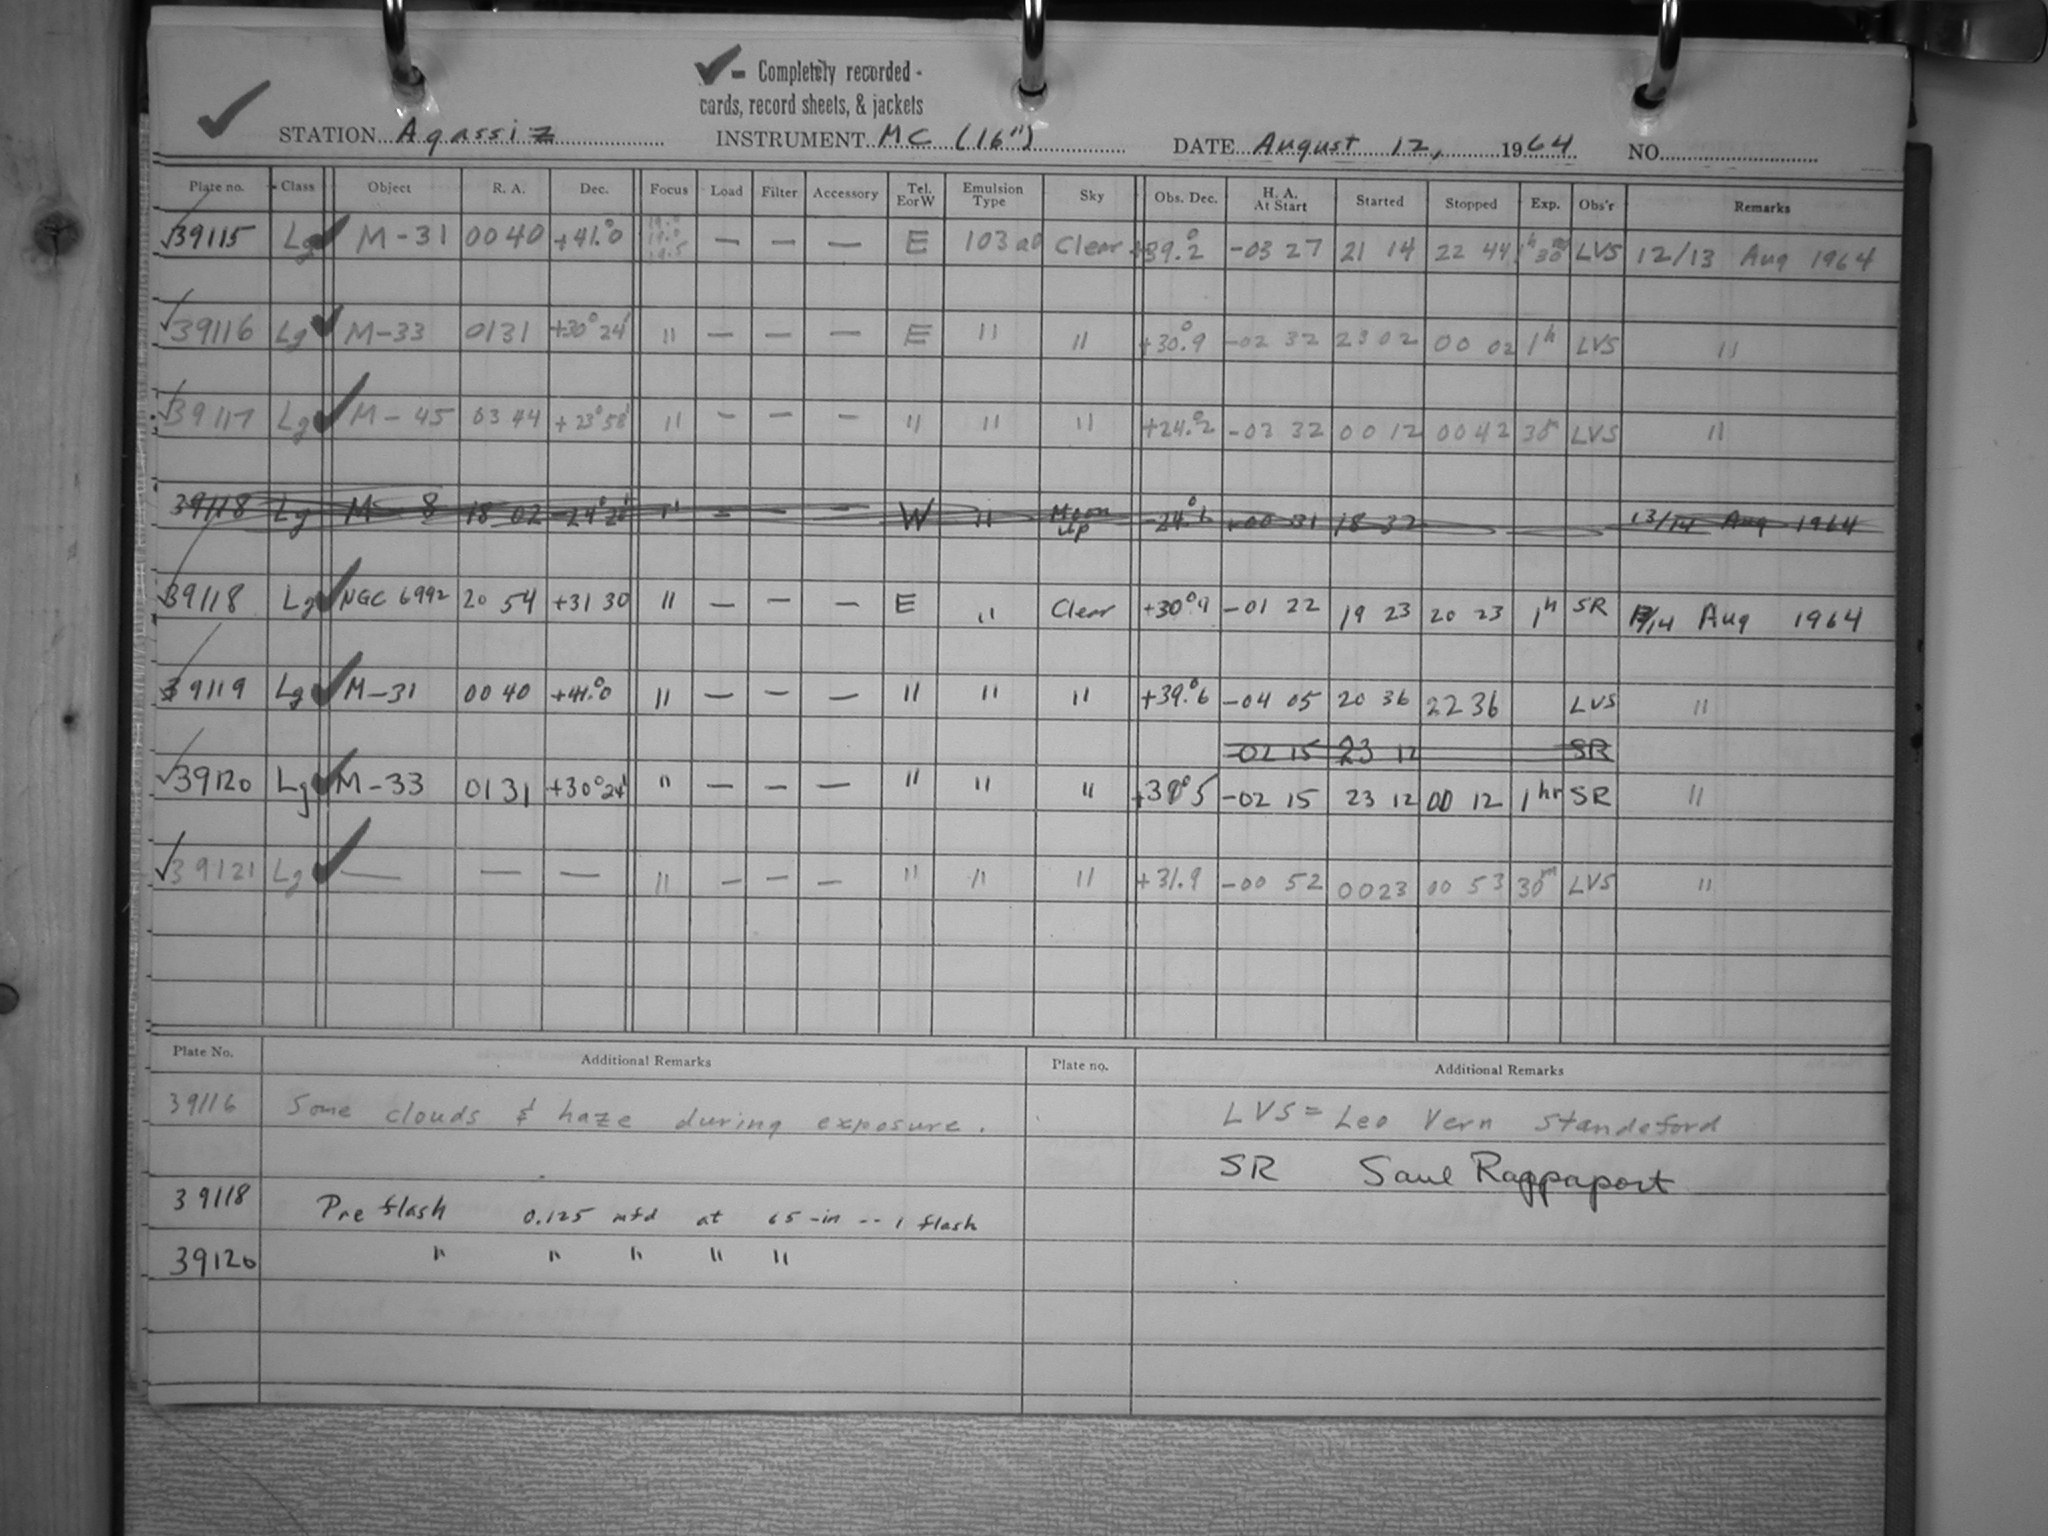 ✓ - Completely recorded -
cards, record sheets, & jackets
STATION Agassiz INSTRUMENT MC (16") DATE August 12, 1964 NO.
Plate no. Class Object R. A. Dec. Focus Load Filter Accessory Tel. E or W Emulsion Type Sky Obs. Dec. H. A. At Start Started Stopped Exp. Obs'r Remarks
39115 Lg M-31 00 40 +41.°0 — — — E 103 a0 Clear +39.°2 -03 27 21 14 22 44 1h 30m LVS 12/13 Aug 1964
39116 Lg M-33 01 31 +30°24' " — — — E " " +30.°9 -02 32 23 02 00 02 1h LVS "
39117 Lg M-45 03 44 +23°58' " — — — " " " +24.°2 -02 32 00 12 00 42 30m LVS "
39118 Lg M-8 18 02 " — — — W " Moon Up -24.°6 +00 31 18 32 13/14 Aug 1964
39118 Lg NGC 6992 20 54 +31 30 " — — — E " Clear -01 22 19 23 20 23 1h SR 13/14 Aug 1964
39119 Lg M-31 00 40 +41.°0 " — — — " " " +39.°6 -04 05 20 36 22 36 LVS "
-02 15 23 12 SR
39120 Lg M-33 01 31 +30°24' " — — — " " " -02 15 23 12 00 12 1hr SR "
39121 Lg — — — " — — — " " " +31.9 -00 52 00 23 00 53 30m LVS "
Plate No. Additional Remarks Plate no. Additional Remarks
39116 Some clouds & haze during exposure. LVS = Leo Vern Standeford
SR Saul Rappaport
39118 Pre flash 0.125 mfd at 65-in -- 1 flash
39120 " " " " "